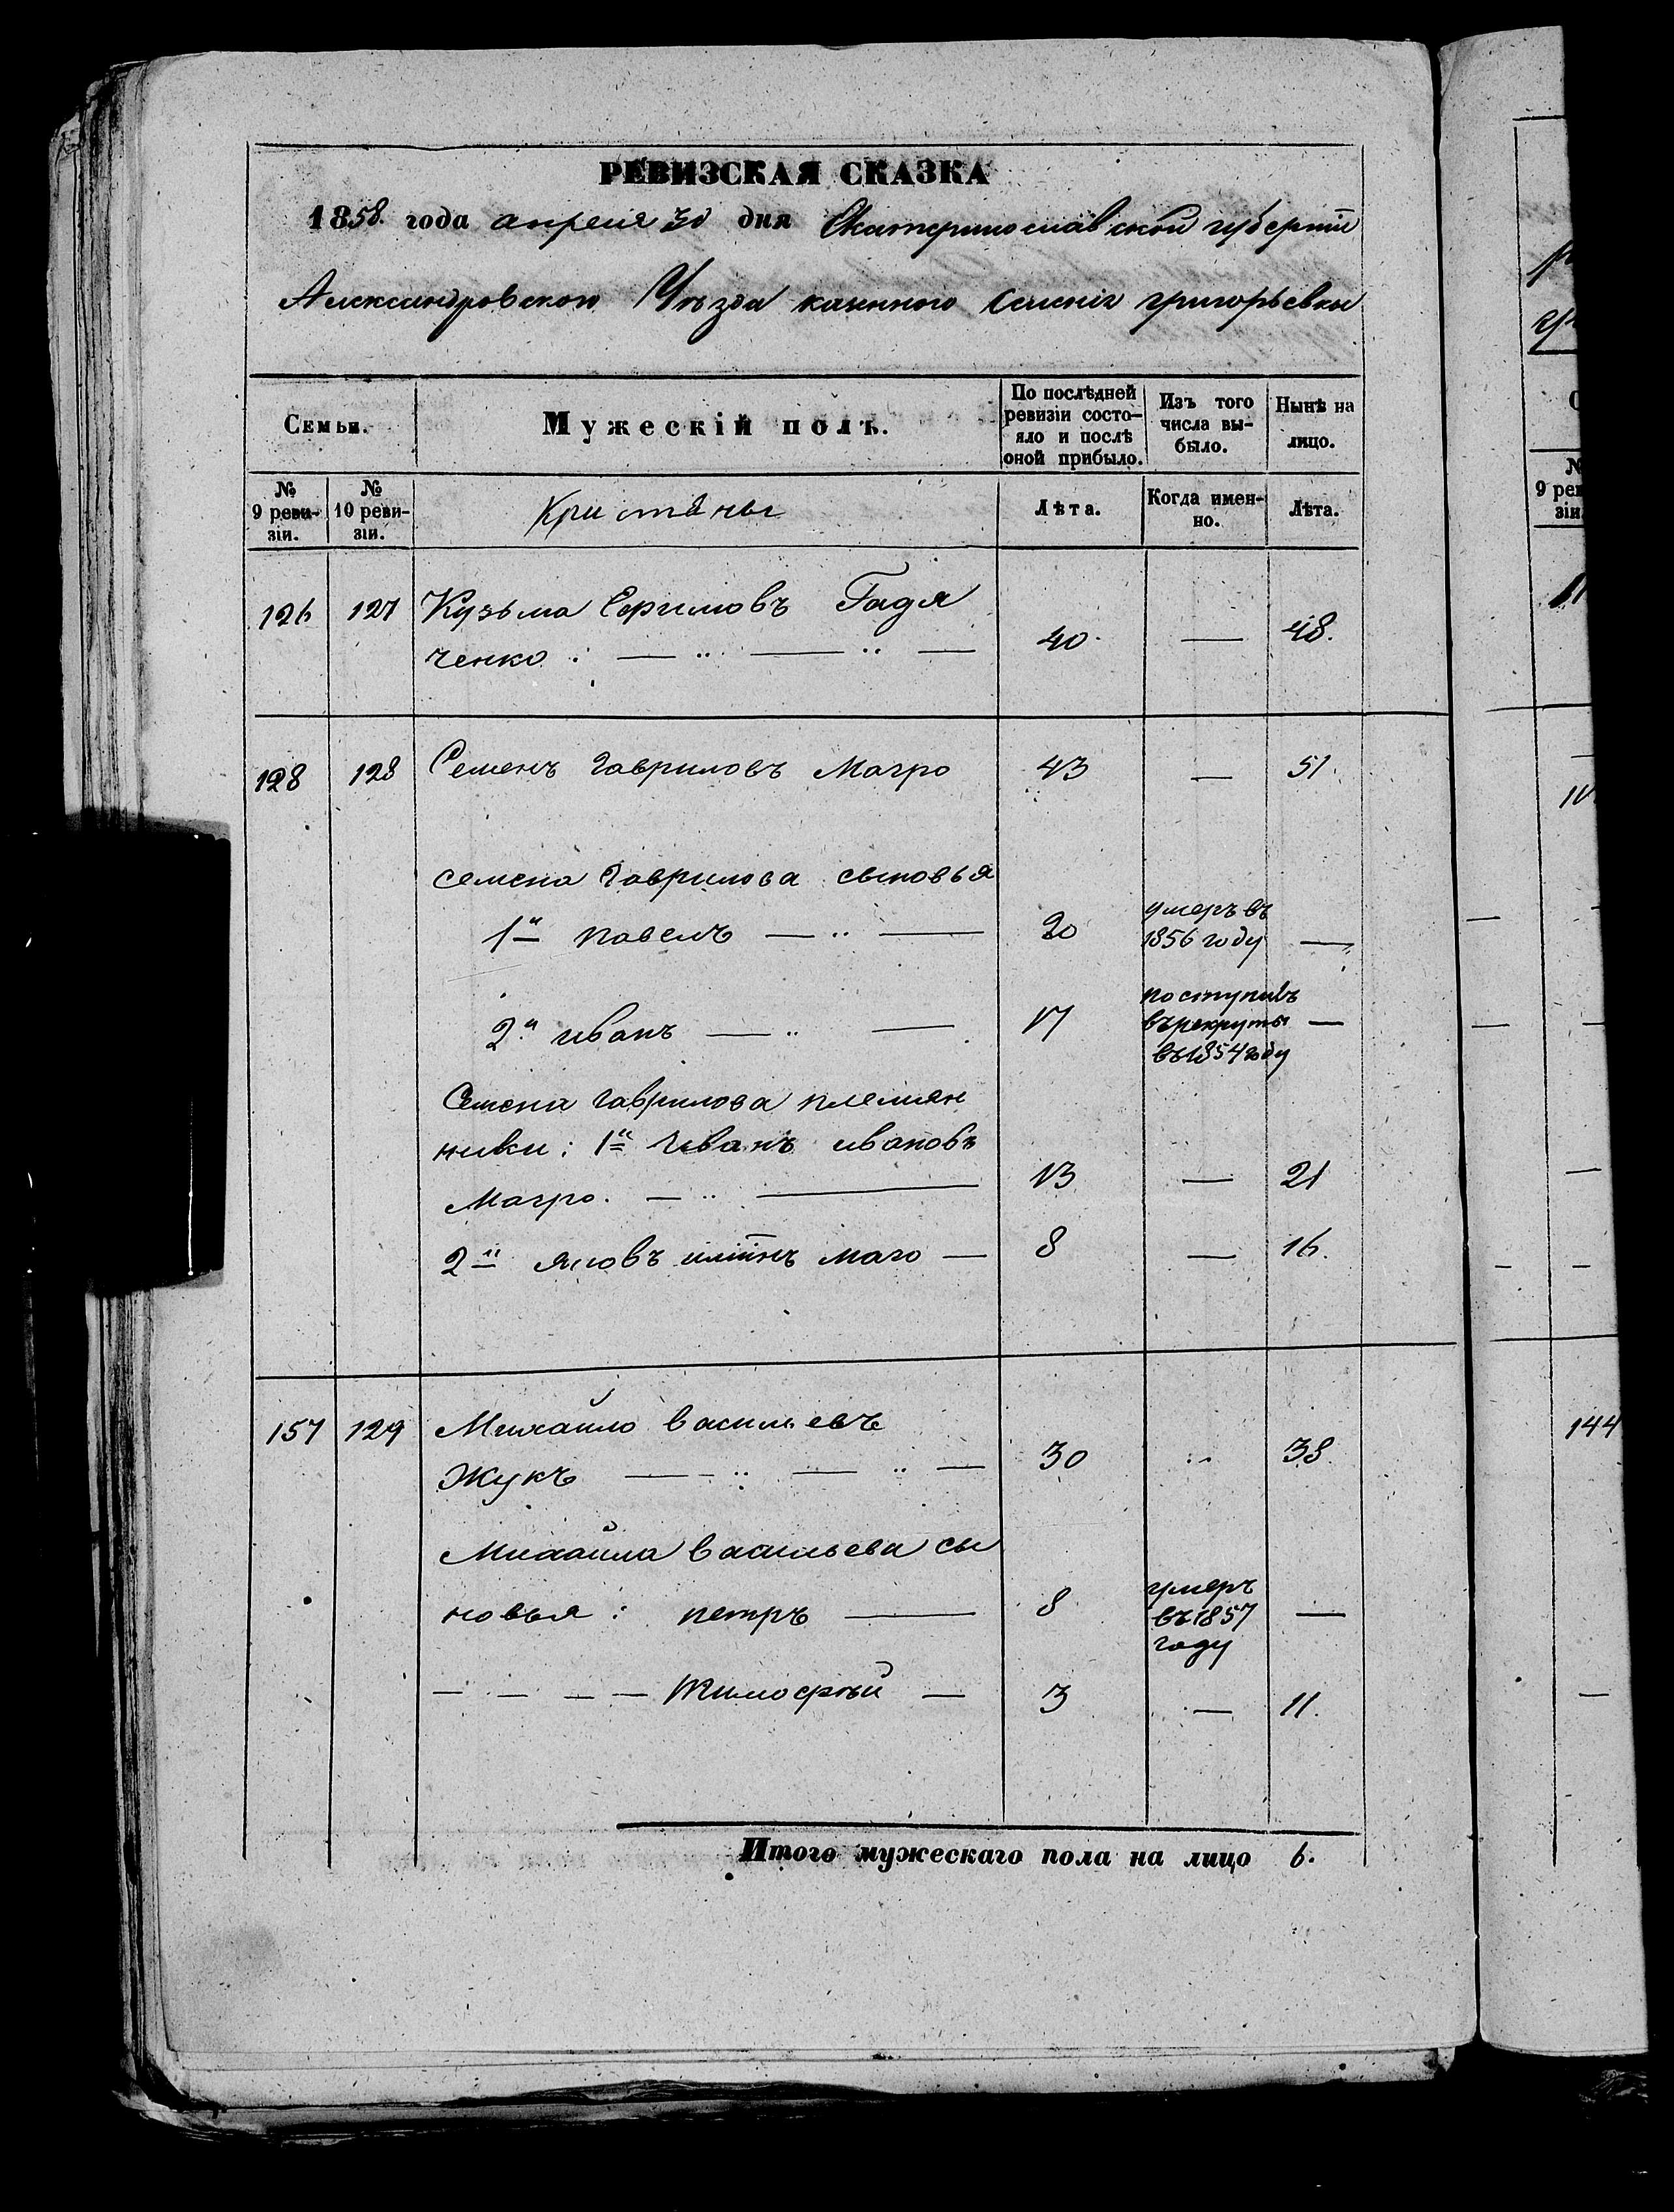 РЕВИЗСКАЯ СКАЗКА
1858 года апреля 30 дня Екатеринославской губернiи
Александровского Уѣзда казенного селенiя григорьевки
Семьи.
Мужескiй полъ.
По послѣдней ревизiи состо-
яло и послѣ оной прибыло.
Изъ того числа вы-
было.
Нынѣ на лицо.
№ 9 реви-
зiи.
№ 10 реви-
зiи.
Кристяны
Лѣта.
Когда имен-
но.
Лѣта.
126 127 Кузьма Ефимовъ Гадя
ченко : 40 — 48.
128 128 Семенъ Гавриловъ Магро 43 — 51.
семена Гаврилова сыновья
1й павелъ — 20 умеръ въ
1856 году —
2й иванъ — 17 поступивъ
въ рекруты —
въ 1854 году
Семена гаврилова племян
ники: 1й Иванъ ивановъ
Магро. — 13 — 21
2й яковъ маго — 8 — 16.
157 129 Михайло васильевъ
Жукъ — 30 38.
Михайла васильева сы
новья: петръ — 8 умеръ
въ 1857 —
году
— — — — Тимофѣй — 3 — 11.
Итого мужескаго пола на лицо 6.
№
9 рев
зiи
144